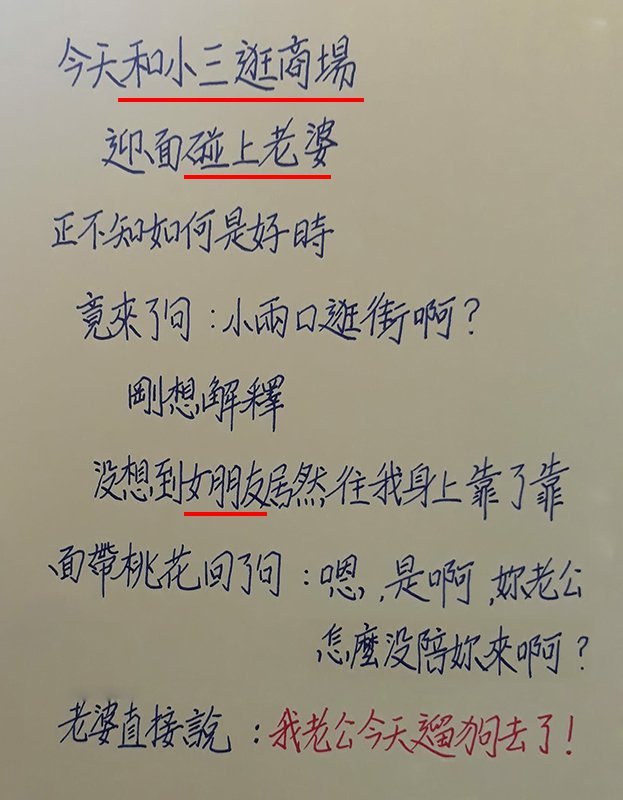 今天和小三逛商場
迎面碰上老婆
正不知如何是好時
竟來了句：小兩口逛街啊？
剛想解釋
没想到女朋友居然往我身上靠了靠
面帶桃花回了句：嗯，是啊，妳老公
怎麼没陪妳來啊？
老婆直接說：我老公今天遛狗去了！